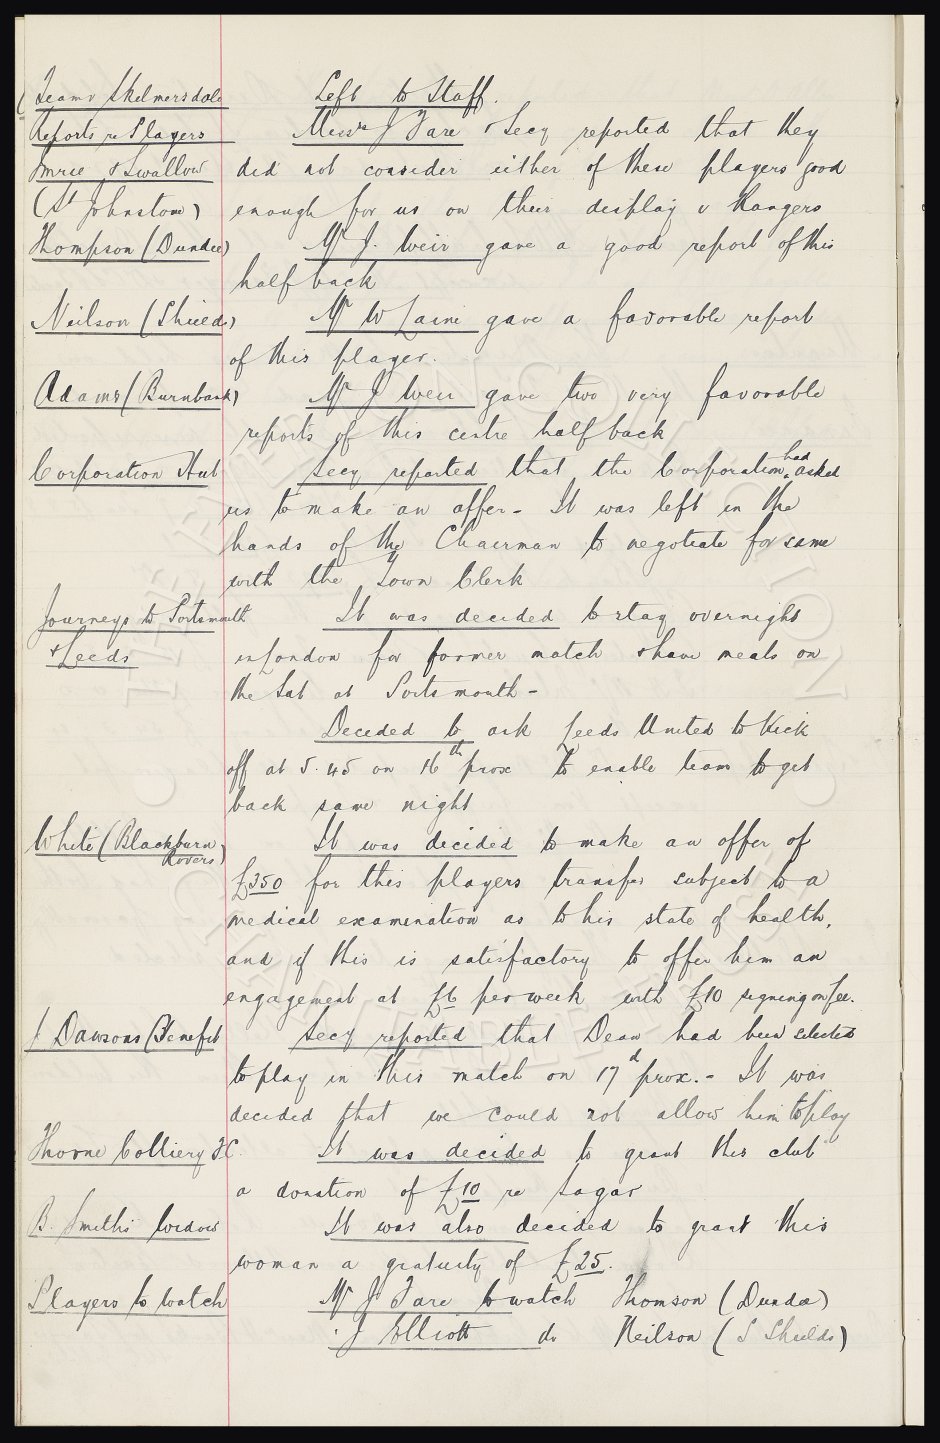 Team v Skelmersdale Left to Staff.
Reports re Players Messrs J Fare & Secy reported that they
Imrie & Swallow did not consider either of these players good
(St Johnstone) enough for us on their display v Rangers
Thompson (Dundee) Mr J. Weir gave a good report of this
half back
Neilson (Shields) Mr W Laini gave a favorable report
of this player.
Adams (Burnbank) Mr J Weir gave two very favorable
reports of this centre half back
Corporation Hut Secy reported that the Corporation had asked
us to make an offer - It was left in the
hands of the Chairman to negotiate for same
with the Town Clerk
Journeys to Portsmouth It was decided to stay overnight
& Leeds in London for former match & have meals on
the Sat at Portsmouth -
Decided to ask Leeds United to Kick
off at 5.45 on 16th prox to enable team to get
back same night
White (Blackburn It was decided to make an offer of
Rovers)
£350 for this players transfer subject to a
medical examination as to his state of health,
and if this is satisfactory to offer him an
engagement at £6 per week with £10 signing on fee.
J Dawsons Benefit Secy reported that Dean had been selected
to play in this match on 17th prox. - It was
decided that we could not allow him to play
Thorne Colliery FC. It was decided to grant this club
a donation of £10 re Sagar
B. Smiths Widow It was also decided to grant this
woman a gratuity of £25.
Players to watch Mr J Fare to watch Thomson (Dundee)
" J Elliott do Neilson (S Shields)